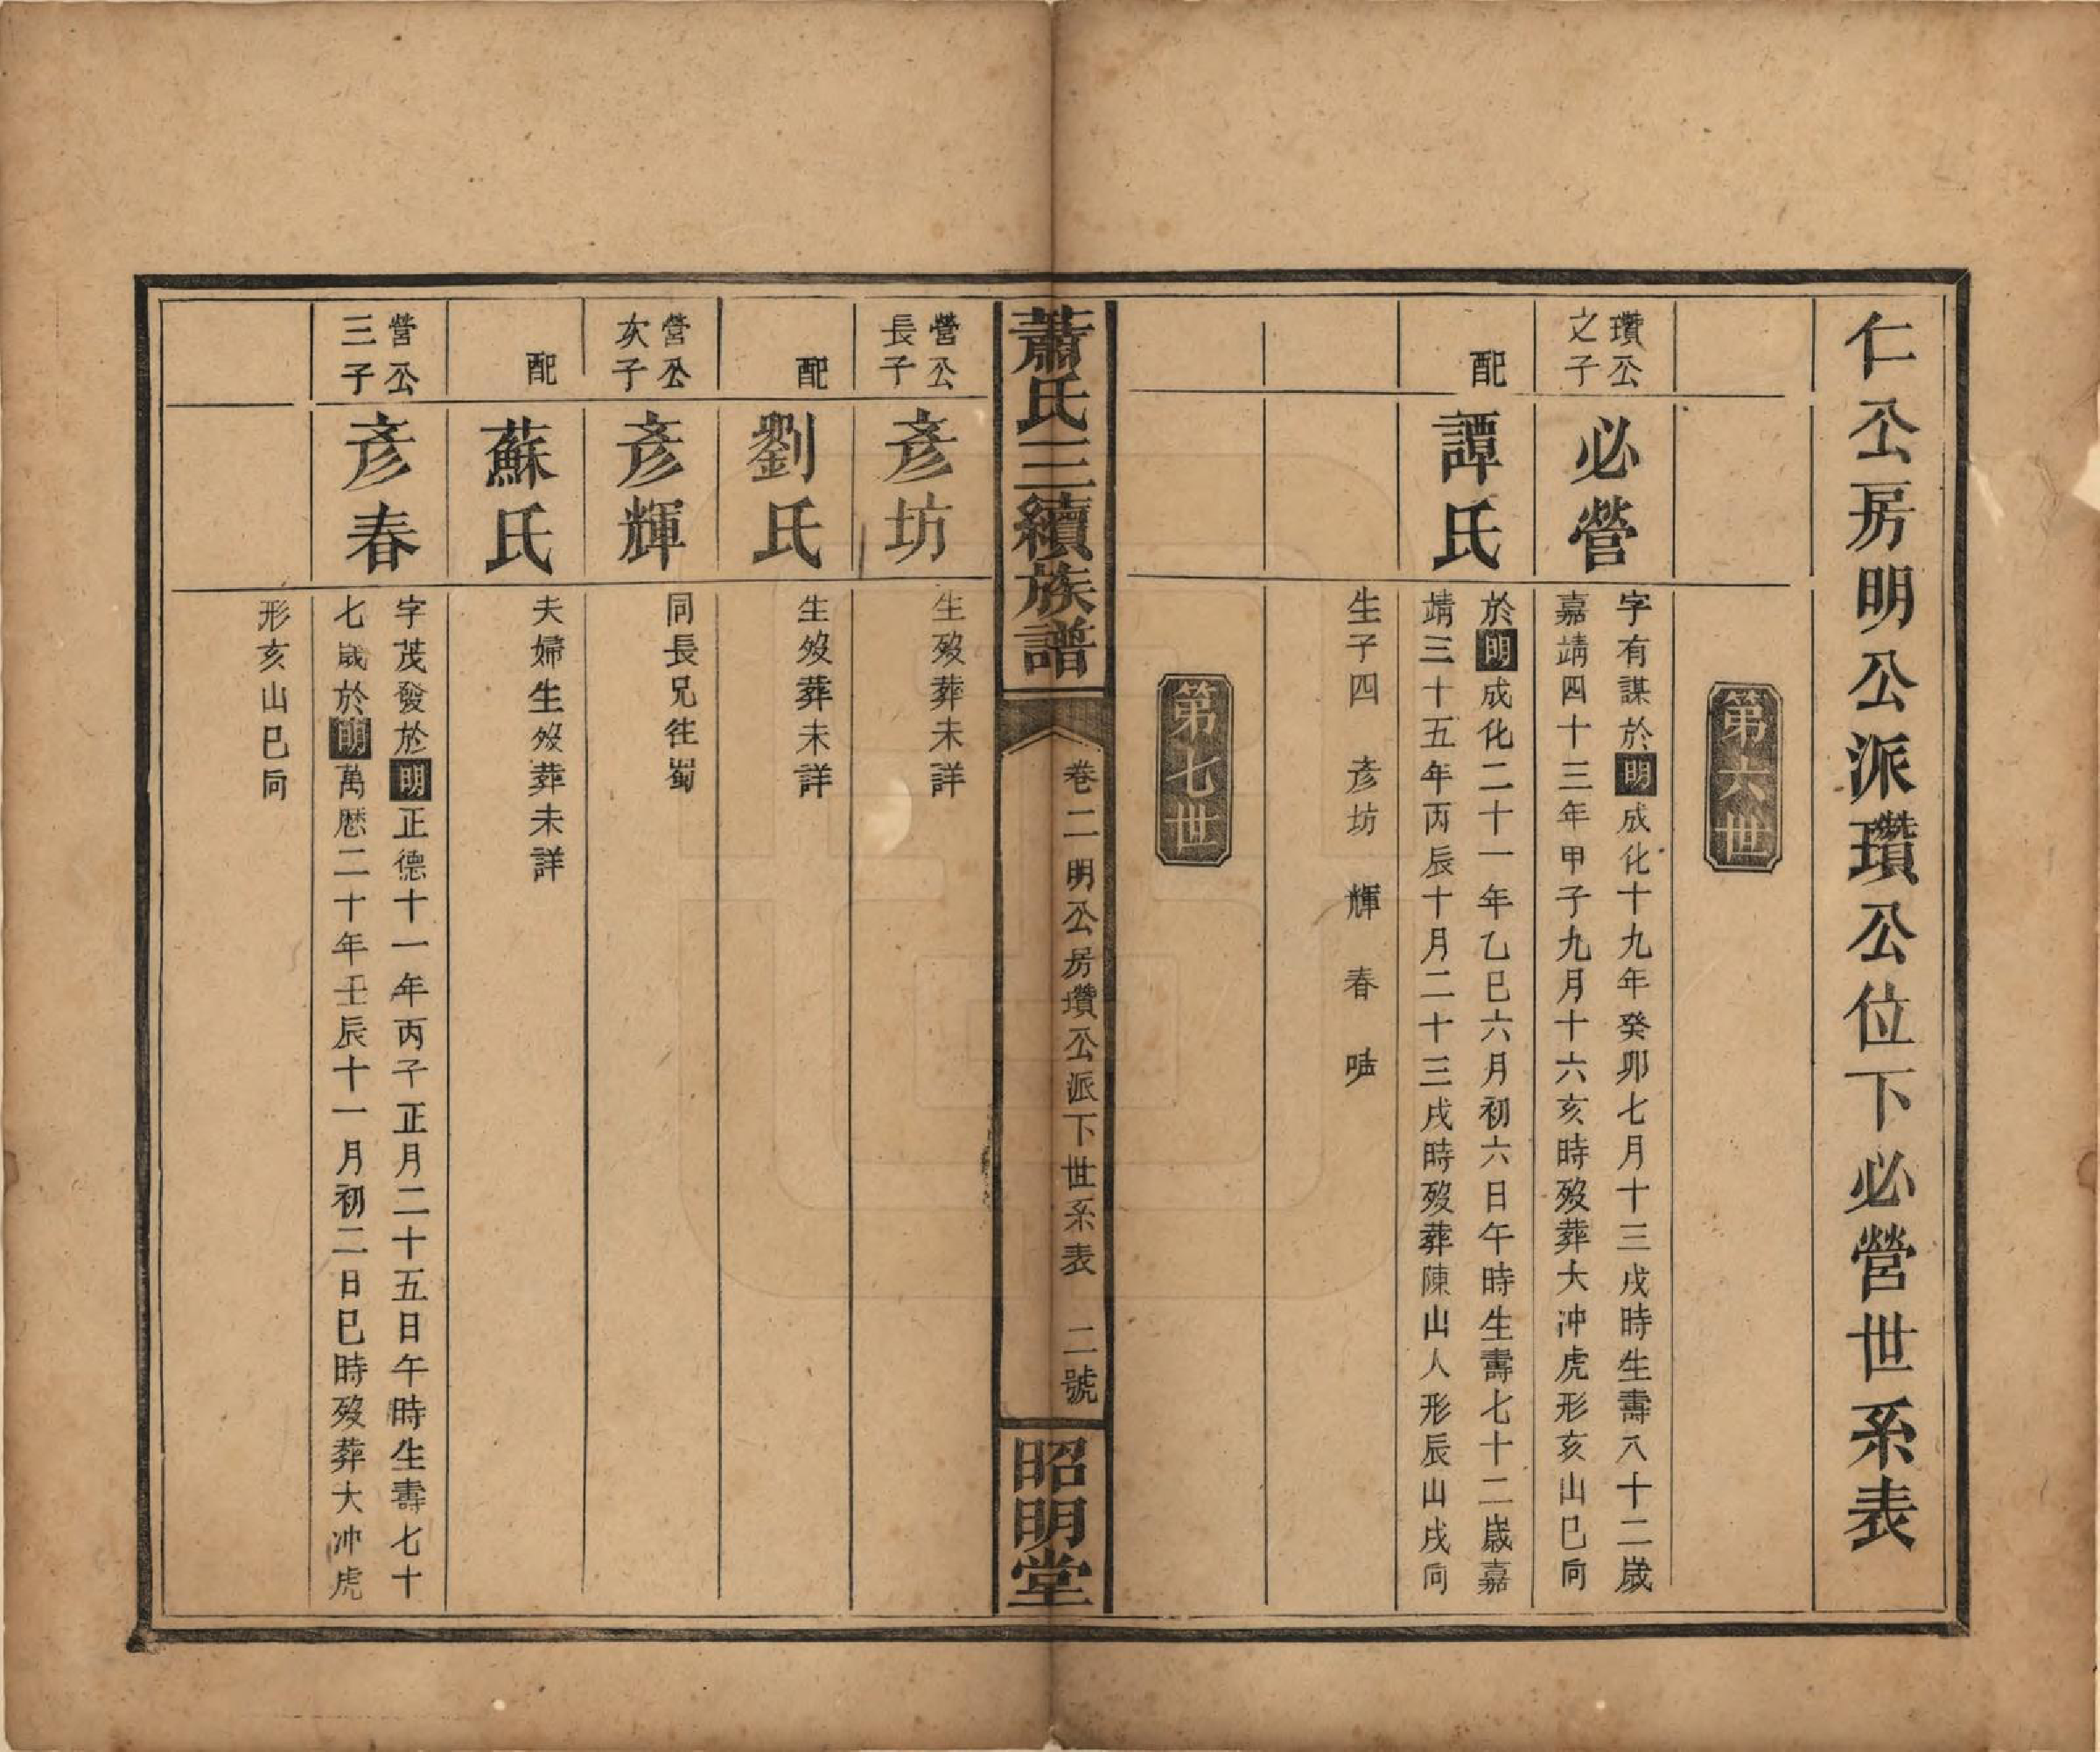 仁公房明公派瓚公位下必營世系表
第六世
瓚公
之子
必營
字有謀於明成化十九年癸卯七月十三戌時生壽八十二歲
嘉靖四十三年甲子九月十六亥時歿葬大冲虎形亥山巳向
配
譚氏
於明成化二十一年乙巳六月初六日午時生壽七十二歲嘉
靖三十五年丙辰十月二十三戌時歿葬陳山人形辰山戌向
生子四 彦坊 輝 春
第七世
蕭氏三續族譜
卷二明公房瓚公派下世系表 二號
昭明堂
營公
長子
彦坊
生歿葬未詳
配
劉氏
生歿葬未詳
營公
次子
彦輝
同長兄往蜀
配
蘇氏
夫婦生歿葬未詳
營公
三子
彦春
字茂發於明正德十一年丙子正月二十五日午時生壽七十
七歲於明萬歷二十年壬辰十一月初二日巳時歿葬大冲虎
形亥山巳向